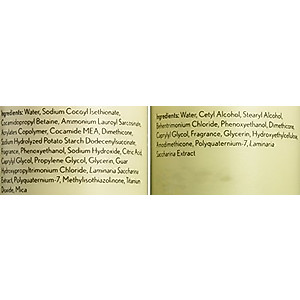 Ingredients: Water, Sodium Cocoyl Isethionate,
Cocamidopropyl Betaine, Ammonium Lauroyl Sarcosinate,
Acrylates Copolymer, Cocamide MEA, Dimethicone,
Sodium Hydrolyzed Potato Starch Dodecenylsuccinate,
Fragrance, Phenoxyethanol, Sodium Hydroxide, Citric Acid,
Caprylyl Glycol, Propylene Glycol, Glycerin, Guar
Hydroxypropyltrimonium Chloride, Laminaria Saccharina
Extract, Polyquaternium-7, Methylisothiazolinone, Titanium
Dioxide, Mica
Ingredients: Water, Cetyl Alcohol, Stearyl Alcohol,
Behentrimonium Chloride, Phenoxyethanol, Dimethicone,
Caprylyl Glycol, Fragrance, Glycerin, Hydroxyethylcellulose,
Amodimethicone, Polyquaternium-7, Laminaria
Saccharina Extract